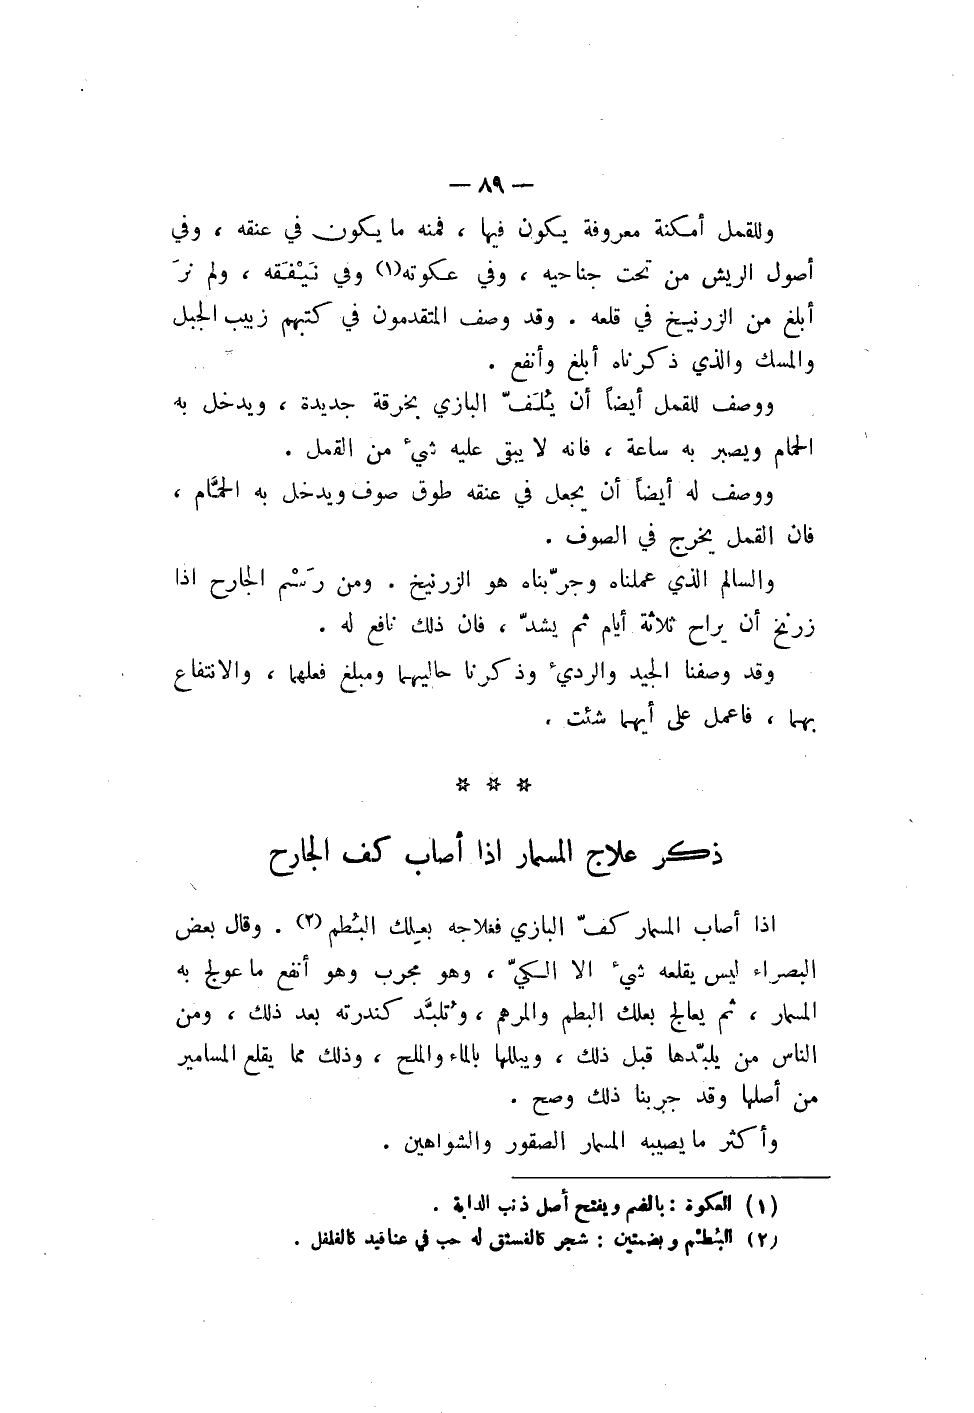 — ٨٩ —
وللقمل أمكنة معروفة يكون فيها ، فمنه ما يكون في عنقه ، وفي
أصول الريش من تحت جناحيه ، وفي عكوته(١) وفي نَيْفَقه ، ولم نرَ
أبلغ من الزرنيخ في قلعه . وقد وصف المتقدمون في كتبهم زبيب الجبل
والمسك والذي ذكرناه أبلغ وأنفع .
ووصف للقمل أيضاً أن يُلَفّ البازي بخرقة جديدة ، ويدخل به
الحمام ويصبر به ساعة ، فانه لا يبقى عليه شيء من القمل .
ووصف له أيضاً أن يجعل في عنقه طوق صوف ويدخل به الحمَّام ،
فان القمل يخرج في الصوف .
والسالم الذي عملناه وجرّبناه هو الزرنيخ . ومن رَسْم الجارح اذا
زرنخ أن يراح ثلاثة أيام ثم يشدّ ، فان ذلك نافع له .
وقد وصفنا الجيد والرديء وذكرنا حاليهما ومبلغ فعلهما ، والانتفاع
بهما ، فاعمل على أيهما شئت .
* * *
ذكر علاج المسمار اذا أصاب كف الجارح
اذا أصاب المسمار كفّ البازي فعلاجه بعِلك البُطم(٢) . وقال بعض
البصراء ليس يقلعه شيء الا الكيّ ، وهو مجرب وهو أنفع ما عولج به
المسمار ، ثم يعالج بعلك البطم والمرهم ، وتُلبَّد كندرته بعد ذلك ، ومن
الناس من يلبّدها قبل ذلك ، ويبللها بالماء والملح ، وذلك مما يقلع المسامير
من أصلها وقد جربنا ذلك وصح .
وأكثر ما يصيبه المسمار الصقور والشواهين .
(١) العكوة : بالضم ويفتح أصل ذنب الدابة .
(٢) البُطْم وبضمتين : شجر كالفستق له حب في عناقيد كالفلفل .